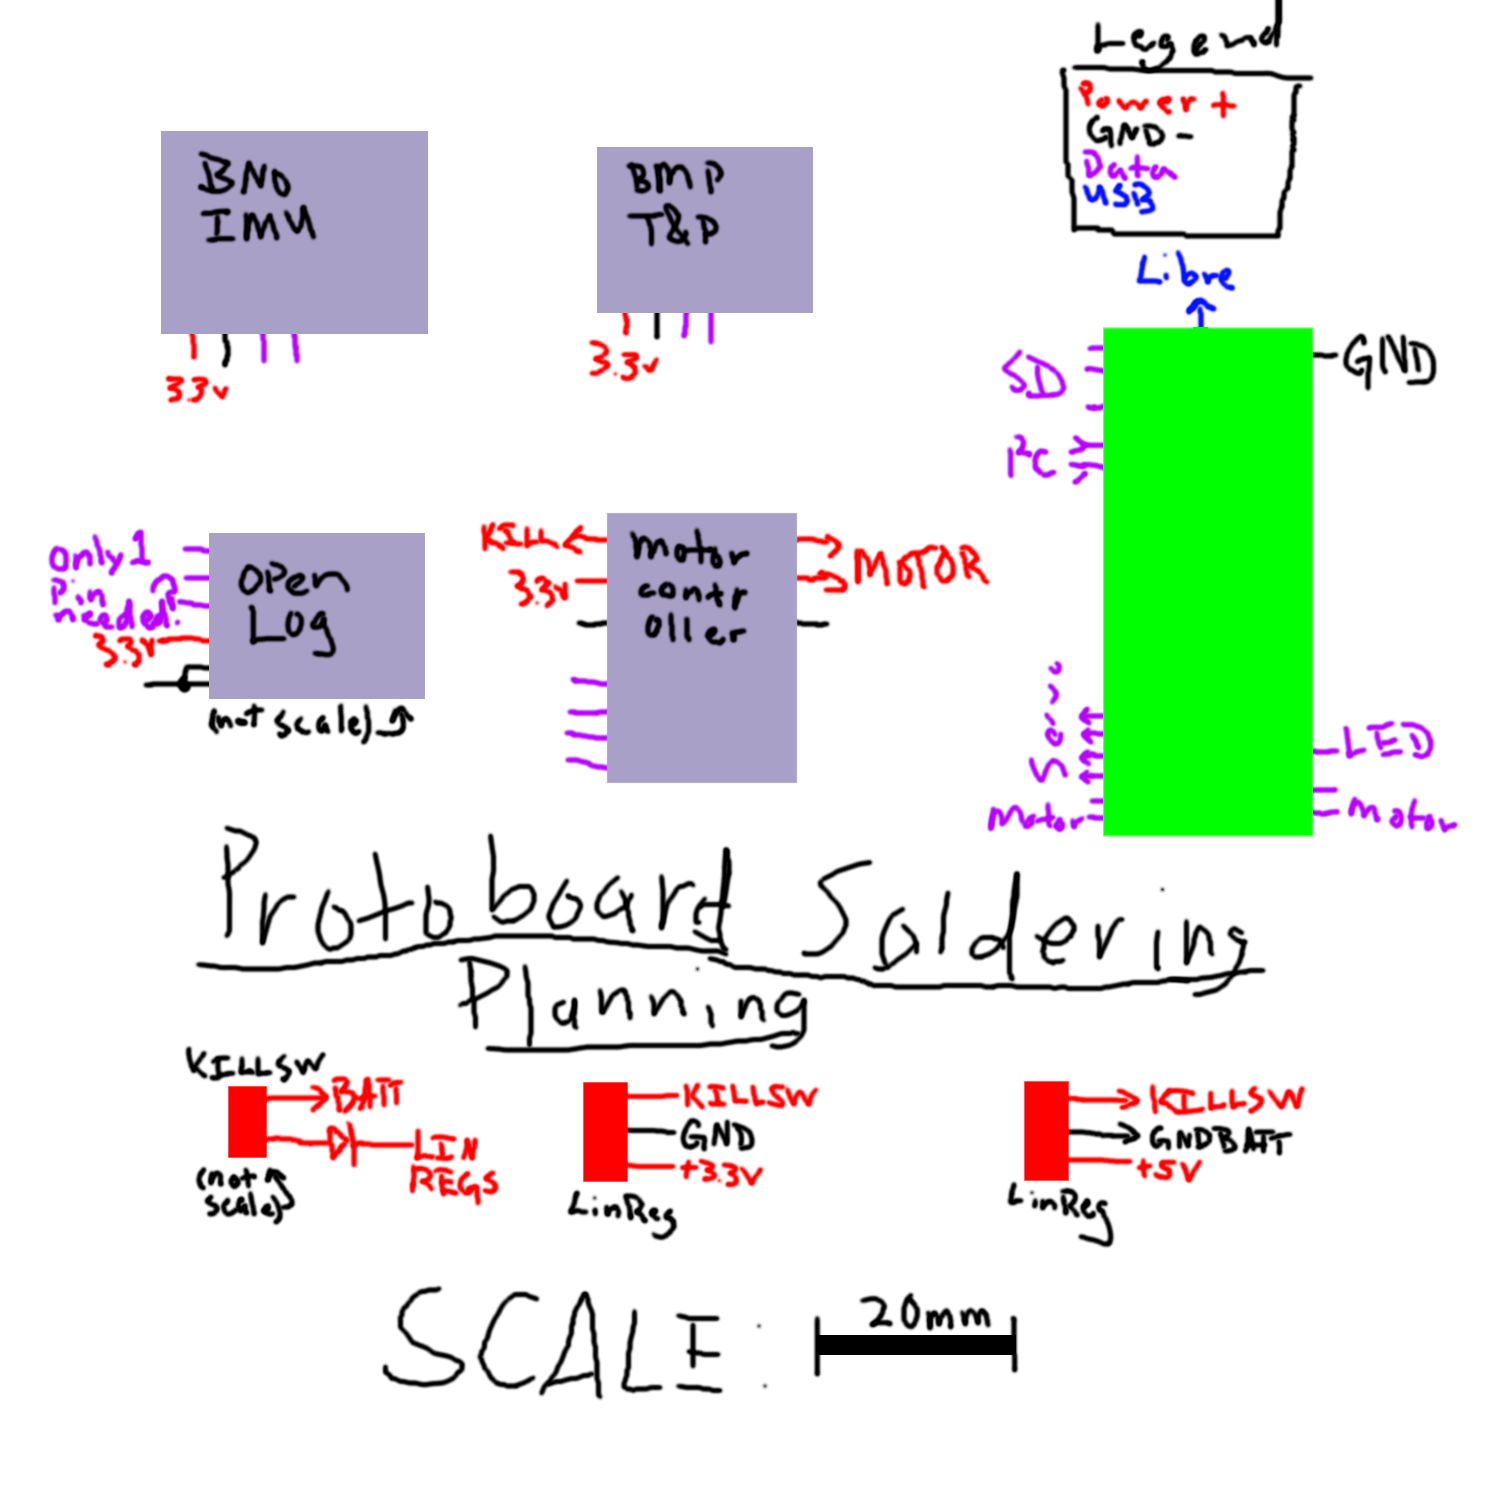 Legend
Power +
GND -
Data
USB
BNO
IMU
3.3v
BMP
T&P
3.3v
Libre
GND
SD
I²C
Servo
motor
LED
motor
only 1
pin
needed?
3.3v
OPen
Log
(not scale)
KILL
3.3v
motor
contr
oller
MOTOR
Protoboard Soldering
Planning
KILLSW
BATT
LIN
REGS
(not
scale)
KILLSW
GND
+3.3V
LinReg
KILLSW
GNDBATT
+5V
LinReg
SCALE:
20mm